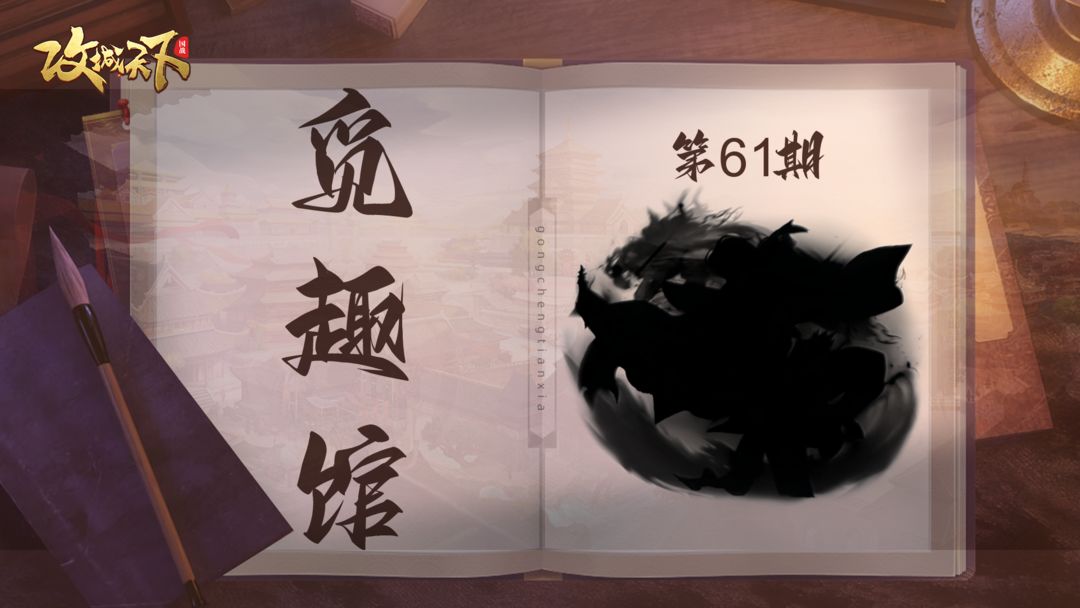 攻城天下
国战
觅趣馆
第61期
gongchengtianxia